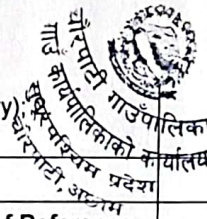 y)
चौरपाटी गाउँपालिका
गाउँ कार्यपालिकाको कार्यालय
सुदूरपश्चिम प्रदेश
चौरपाटी, अछाम